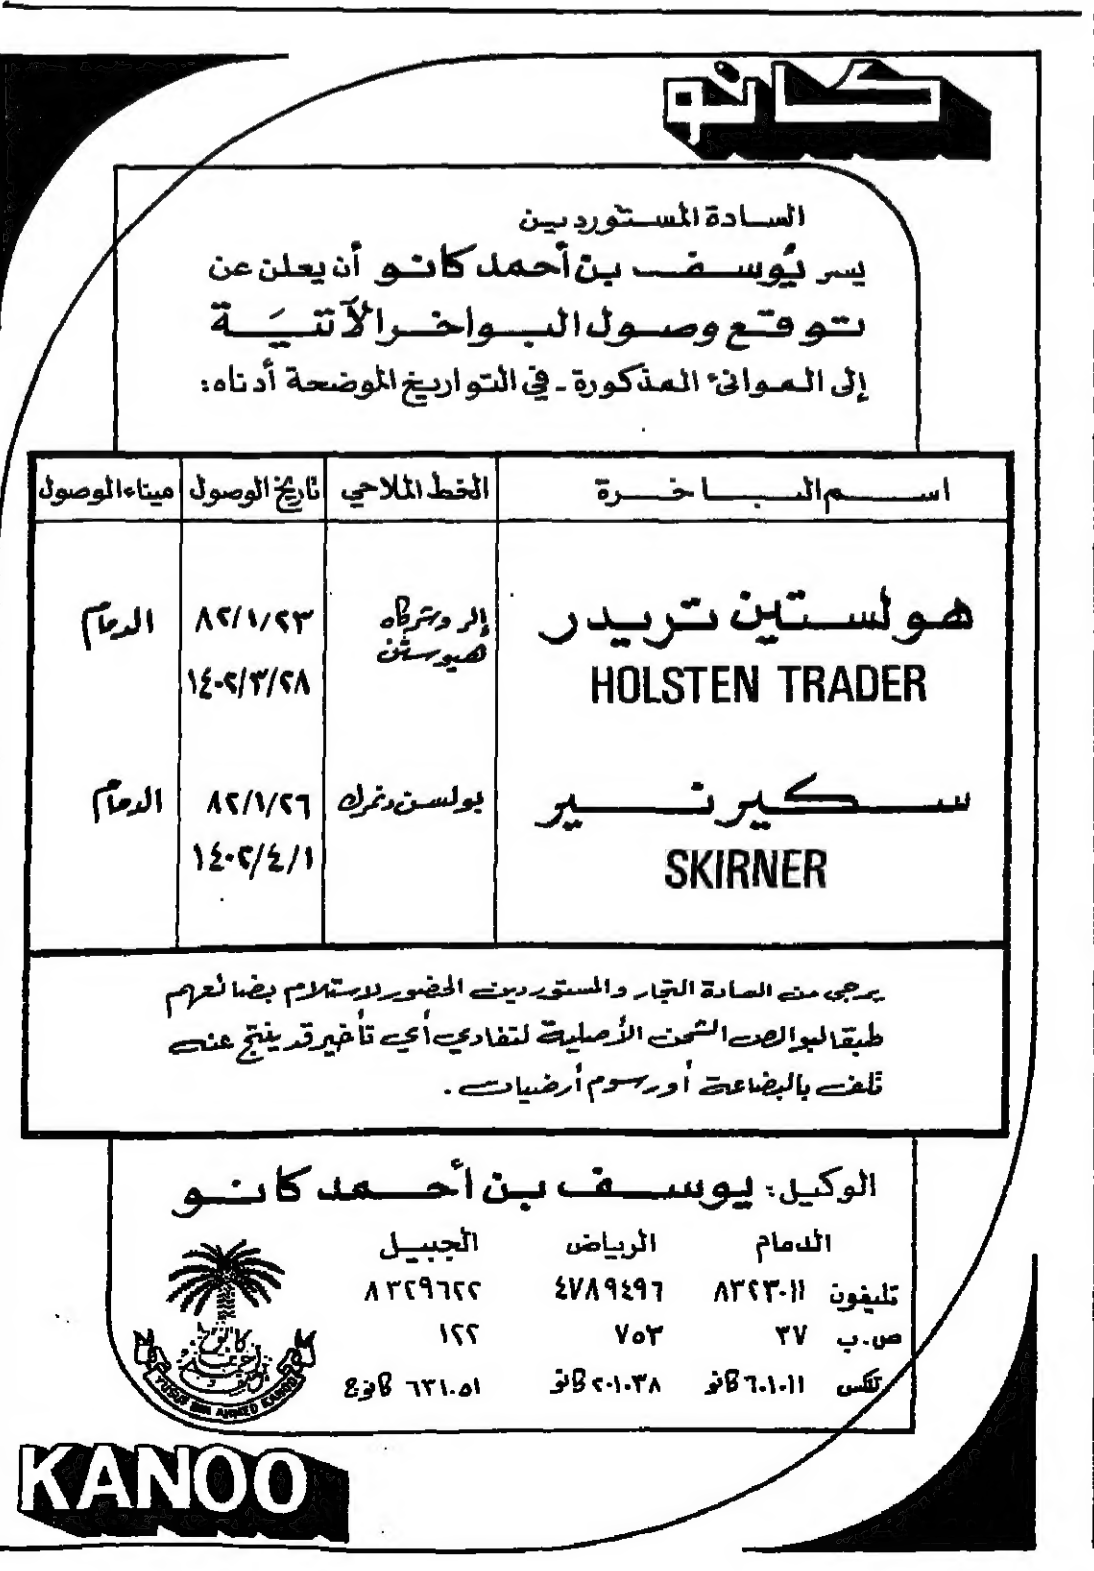 كانو
السادة المستوردين
يسر يُوسف بن أحمد كانو أن يعلن عن
توقع وصول البواخر الآتيَة
إلى الموانئ المذكورة - في التواريخ الموضحة أدناه:
اسم الباخرة الخط الملاحي تاريخ الوصول ميناء الوصول
هولستين تريدر إلر وشركاه ٨٢/١/٢٣ الدمام
هيوستن
HOLSTEN TRADER ١٤٠٢/٣/٢٨
سكيرنير بولسن دنمرك ٨٢/١/٢٦ الدمام
SKIRNER ١٤٠٢/٤/١
يرجى من السادة التجار والمستوردين الحضور لاستلام بضائعهم
طبقا لبوالص الشحن الأصلية لتفادي أي تأخير قد ينتج عنه
تلف بالبضاعة أو رسوم أرضيات .
الوكيل: يوسف بن أحمد كانو
الدمام الرياض الجبيل
تليفون ٨٣٢٣٠١١ ٤٧٨٩٤٩٦ ٨٣٢٩٦٢٢
ص.ب ٣٧ ٧٥٣ ١٢٢
تلكس ٦٠١٠١١ كانو ٢٠١٠٣٨ كانو ٦٣١٠٥١ كانوج
YUSUF BIN AHMED KANOO
KANOO